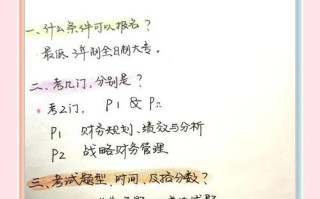 一、什么条件可以报名？
最低3年制全日制大专。
二、考几门，分别是？
考2门， P1 & P2
P1 财务规划、绩效与分析
P2 战略财务管理
三、考试题型、时间、及格分数？